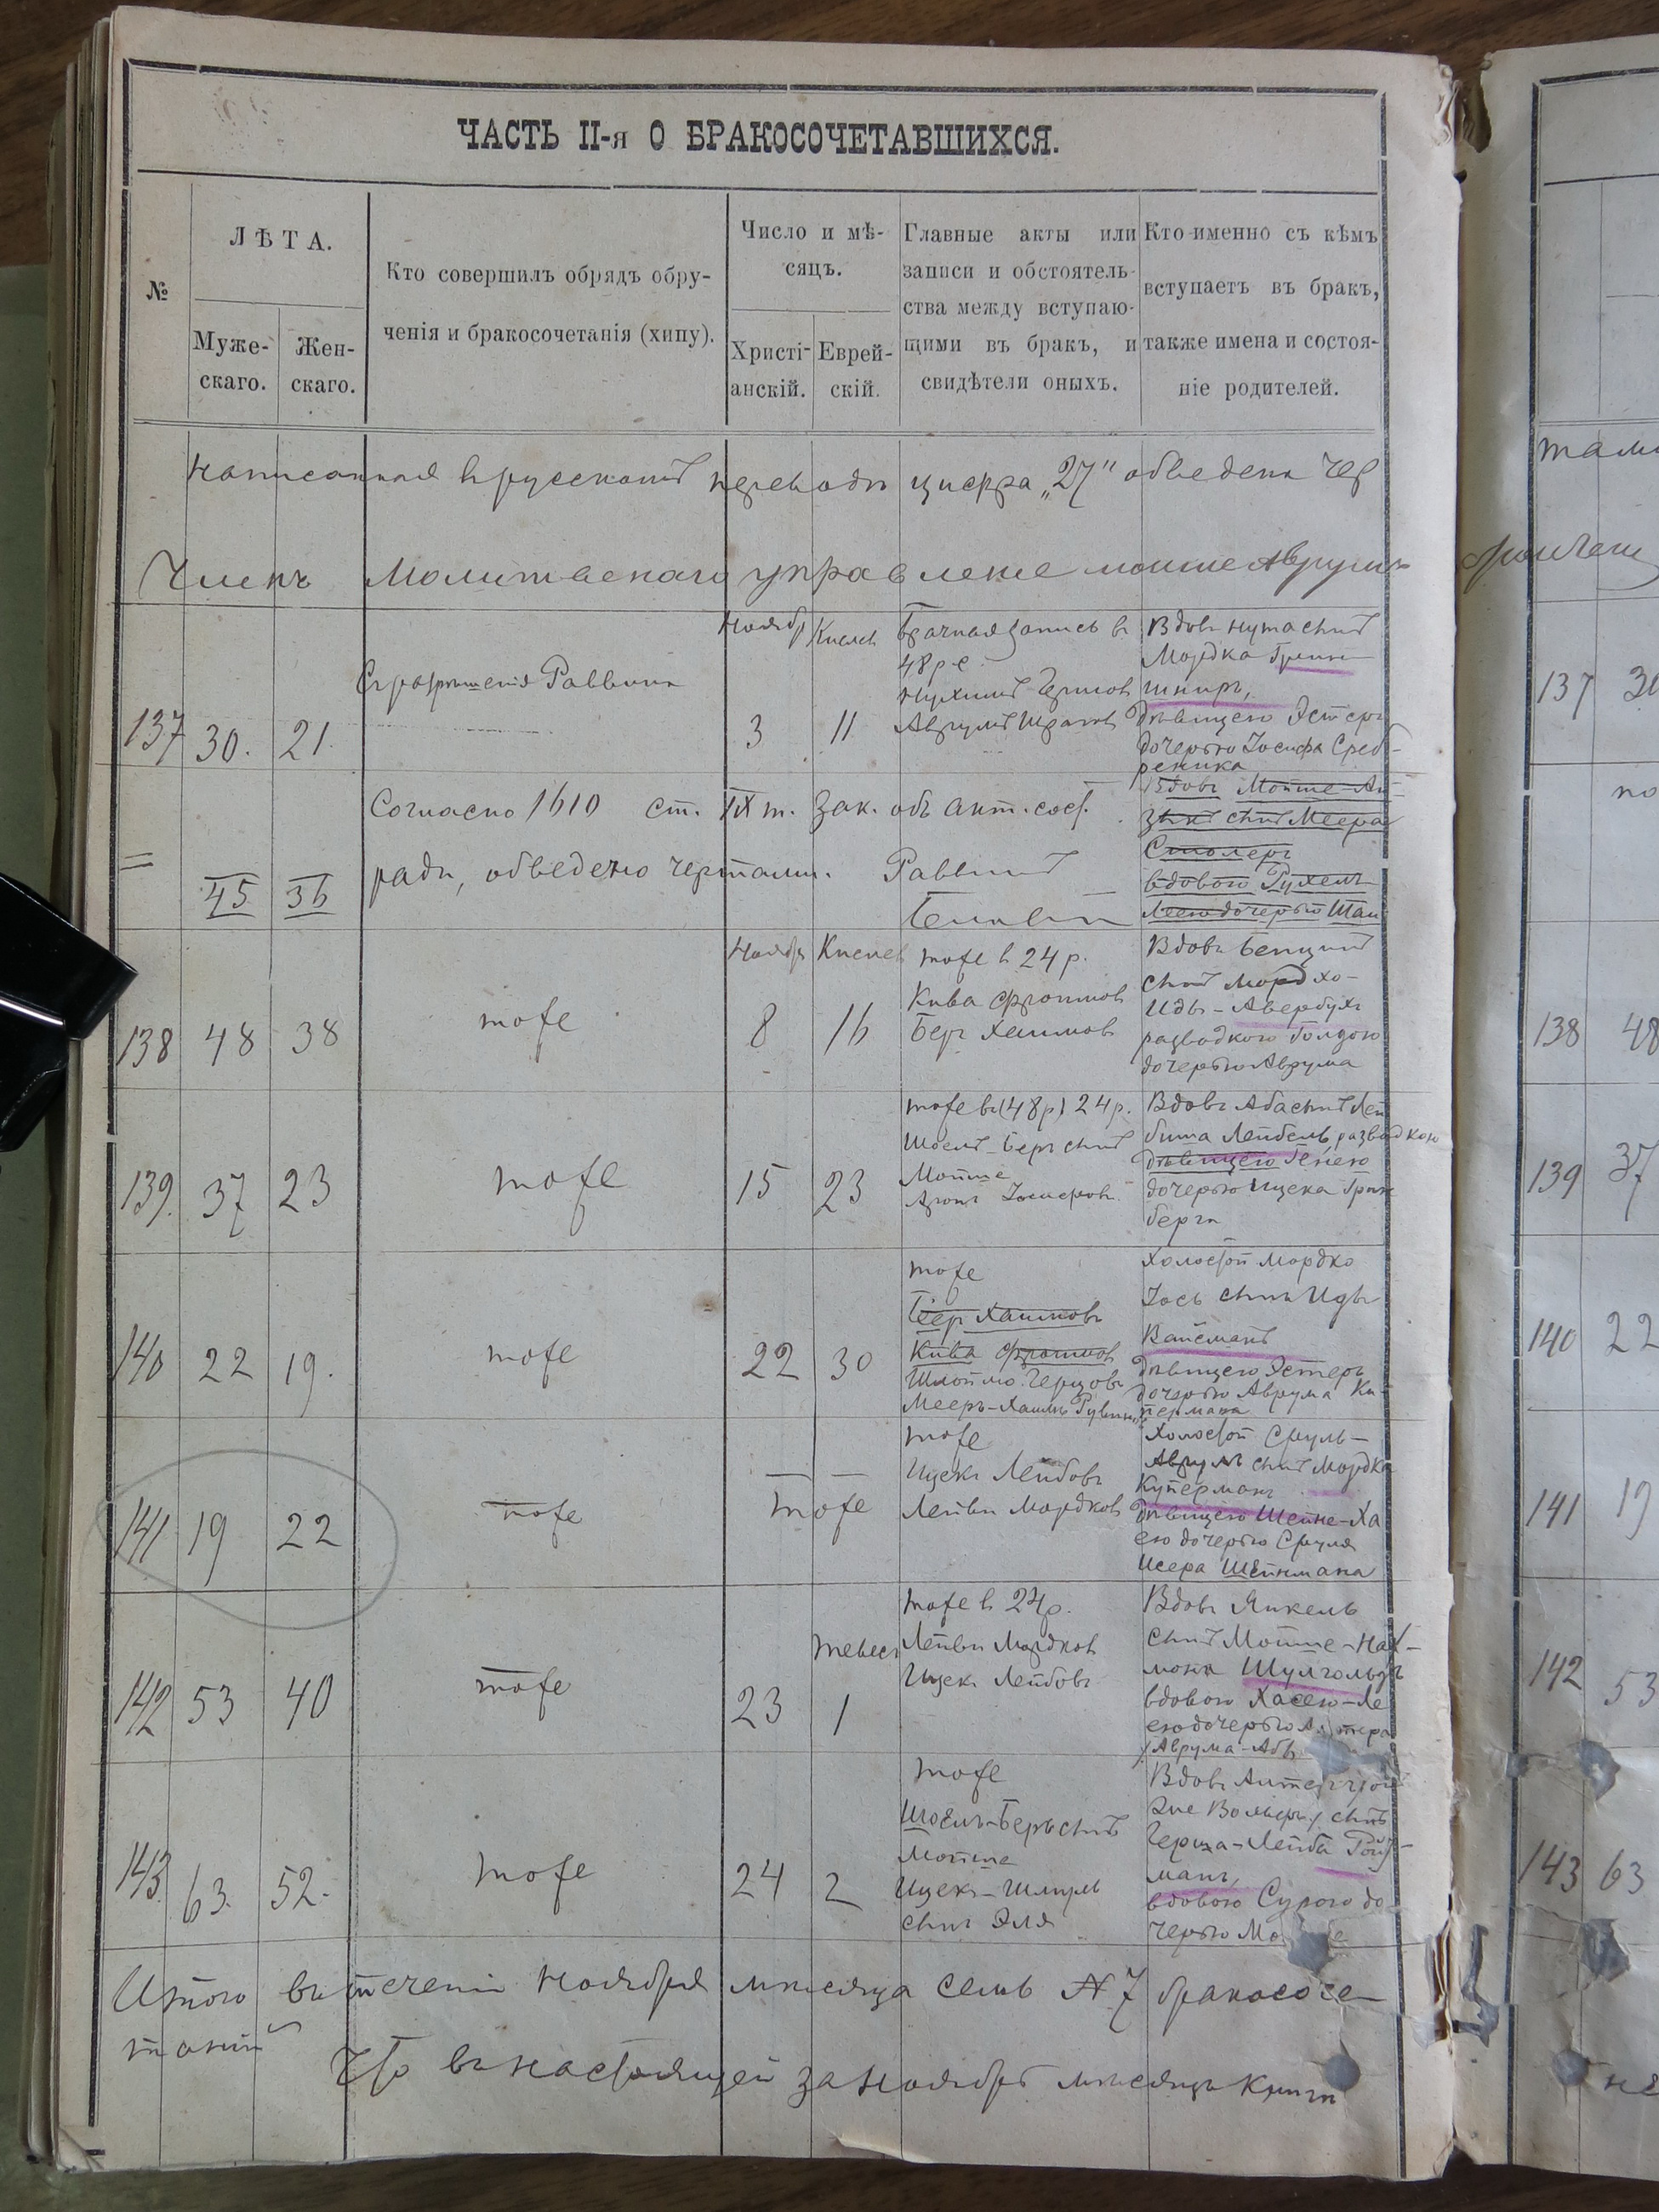 ЧАСТЬ II-я О БРАКОСОЧЕТАВШИХСЯ.
№
ЛѢТА.
Муже-
скаго.
Жен-
скаго.
Кто совершилъ обрядъ обру-
ченія и бракосочетанія (хипу).
Число и мѣ-
сяцъ.
Христі-
анскій.
Еврей-
скій.
Главные акты или
записи и обстоятель-
ства между вступаю-
щими въ бракъ, и
свидѣтели оныхъ.
Кто именно съ кѣмъ
вступаетъ въ бракъ,
также имена и состоя-
ніе родителей.
написанная в русскомъ переводѣ цифра „27" обведена чер
Членъ Молитвенаго управление мошне Аврумъ
137
30.
21.
Съ разрѣшенія Раввина
Ноябр
3
Кислев
11
Брачная запись в
48 р с.
Нухимъ Герш­ков
Аврумъ
Вдовъ Нута сынъ
Мордка Грин
шпиръ,
дѣвицею Эстеръ
дочерью Іосифа Среб-
реника
=
45
36
Согласно 1610 ст. IX т. Зак. объ акт. сост.
ради, обведено чертами. Раввинъ
Вдовъ Мойше-Ай-
зикъ сынъ Меера
Столеръ
вдовою Рухель
Леею дочерью Шам
138
48
38
тоже
Ноябр
8
Кислев
16
тоже в 24 р.
Кива Фроимов
Беръ Хаимов
Вдовъ Бенціинъ
сынъ Мордхо-
Иды-Авербухъ
разводкою Голдою
дочерью Аврума
139.
37
23
тоже
15
23
тоже въ (48 р) 24 р.
Шоелъ-Беръ сынъ
Мойше
Аронъ Іосифовъ
Вдовъ Аба сынъ Лей
биша Лейбель, разводкою
дѣвицею Бенею
дочерью Ицека Грин
берга
140
22
19.
тоже
22
30
тоже
Беръ Хаимовъ
Кива Фроимов
Шлоймо Герцовъ
Мееръ-Хаимъ Рувинов
Холостой Мордко
Іось сынъ Иды
Вайсманъ
дѣвицею Эстеръ
дочерью Аврума Ки-
пермана
141
19
22
тоже
— —
тоже
тоже
Ицекъ Лейбовъ
Лейви Мордков
Холостой Сруль-
Аврумъ сынъ Мордка
Куперманъ
дѣвицею Шейне-Ха
ею дочерью Сруля
Исера Шейнмана
142
53
40
тоже
23
Тевесъ
1
тоже в 24 р.
Лейви Мордков
Ицек Лейбовъ
Вдовъ Янкель
сынъ Мойше-Нах-
мона Шулгольдъ
вдовою Хасею-Ле
ею дочерью
Аврума-Аб
143
63.
52.
тоже
24
2
тоже
Шоелъ-Беръ сынъ
Мойше
Ицекъ-Шмуль
сынъ Эля
Вдовъ
сынъ
Герша-Лейба Ройз-
манъ,
вдовою Сурою до-
черью
Итого въ теченіи Ноября мѣсяца семь № 7 бракосоче-
таній
Что въ настоящей за Ноябрь мѣсяцъ книги
137
138
48
139
37
140
22
141
19
142
53
143
63